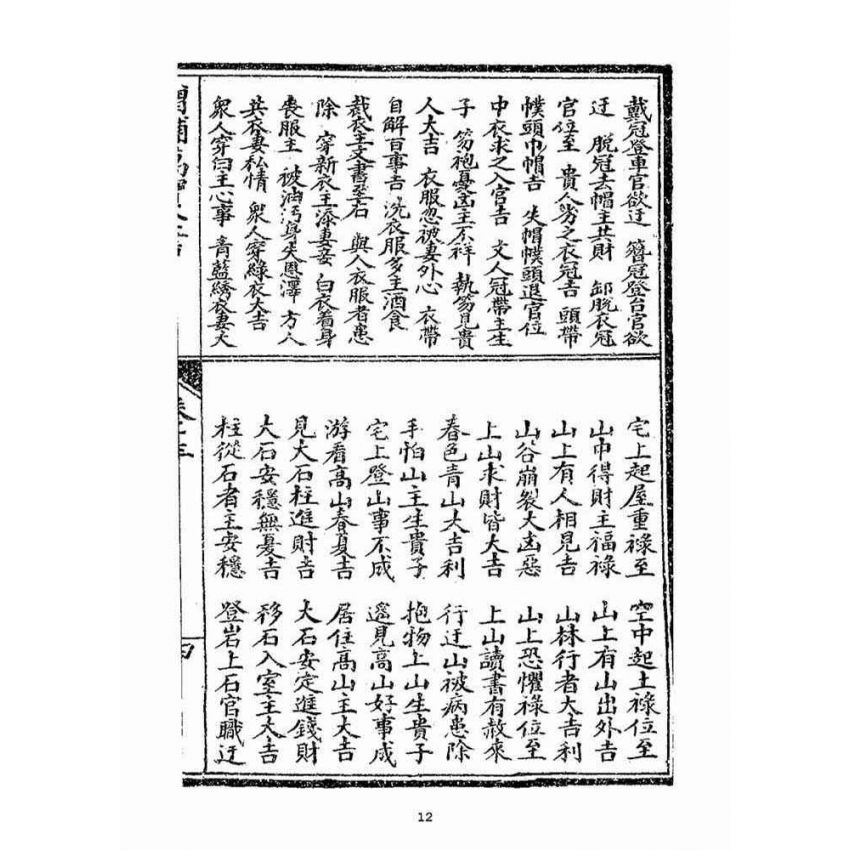 戴冠登車官欲迁　簪冠登台官欲
迁　脱冠去帽主共財　卸脫衣冠
官位至　貴人劣之衣冠吉　頭帶
幞頭巾帽吉　失帽幞頭退官位
中衣求之入官吉　文人冠帶主生
子　笏袍憂凶主不祥　執笏見貴
人大吉　衣服忽被妻外心　衣帶
自解百事吉　洗衣服多主酒食
裁衣主文書至右　與人衣服者患
除　穿新衣主添妻妾　白衣着身
喪服主　被油污身失恩澤　方人
共衣妻私情　衆人穿綠衣大吉
衆人穿白主心事　青藍綉衣妻大
宅上起屋重祿至　空中起土祿位至
山中得財主福祿　山上有山出外吉
山上有人相見吉　山林行者大吉利
山谷崩裂大凶惡　山上恐懼祿位至
上山求財皆大吉　上山讀書有赦來
春色青山大吉利　行迂山被病患除
手怕山主生貴子　抱物上山生貴子
宅上登山事不成　遙見高山好事成
游看高山春夏吉　居住高山主大吉
見大石柱進財吉　大石安定進錢財
大石安穩無憂吉　移石入室主大吉
柱從石者主安穩　登岩上石官職迂
卷之三
四
12